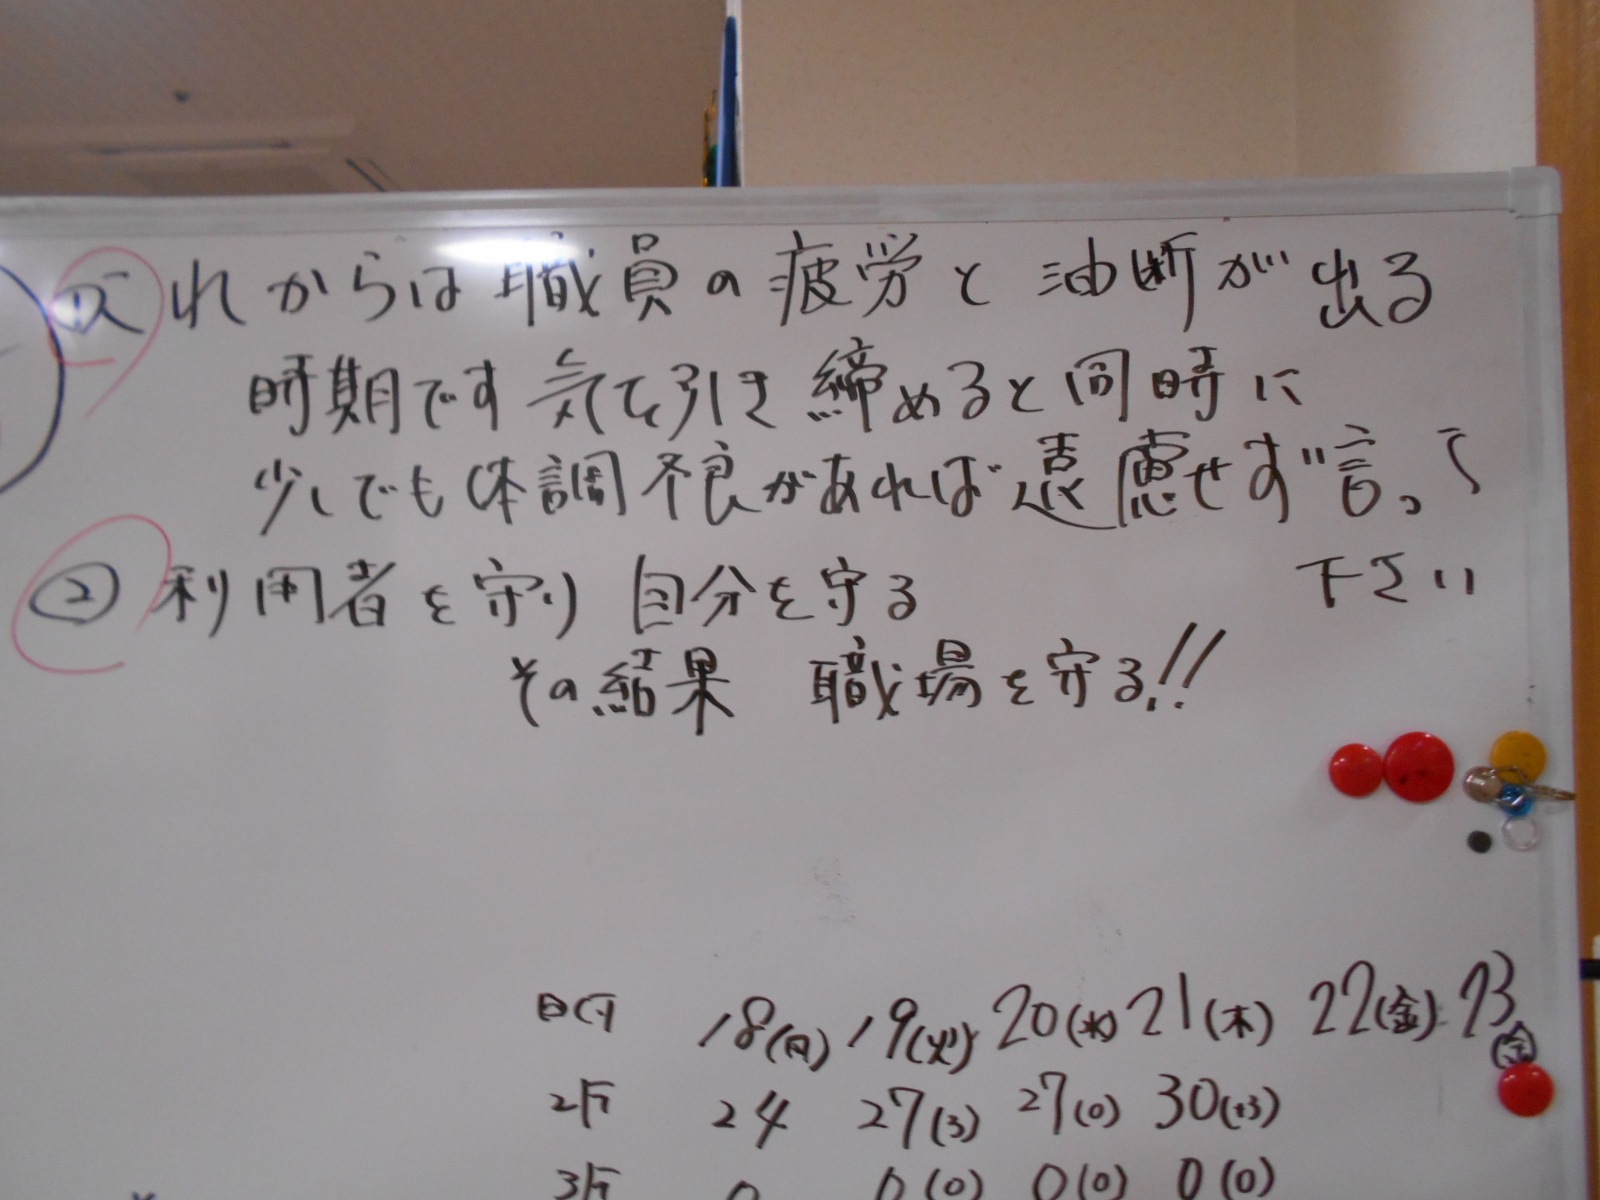 ① これからは職員の疲労と油断が出る
時期です気を引き締めると同時に
少しでも体調不良があれば遠慮せず言って
下さい
② 利用者を守り 自分を守る
その結果 職場を守る!!
日付 18(月) 19(火) 20(水) 21(木) 22(金) 23
2F 24 27(3) 27(0) 30(+3)
3F 0 0(0) 0(0) 0(0)